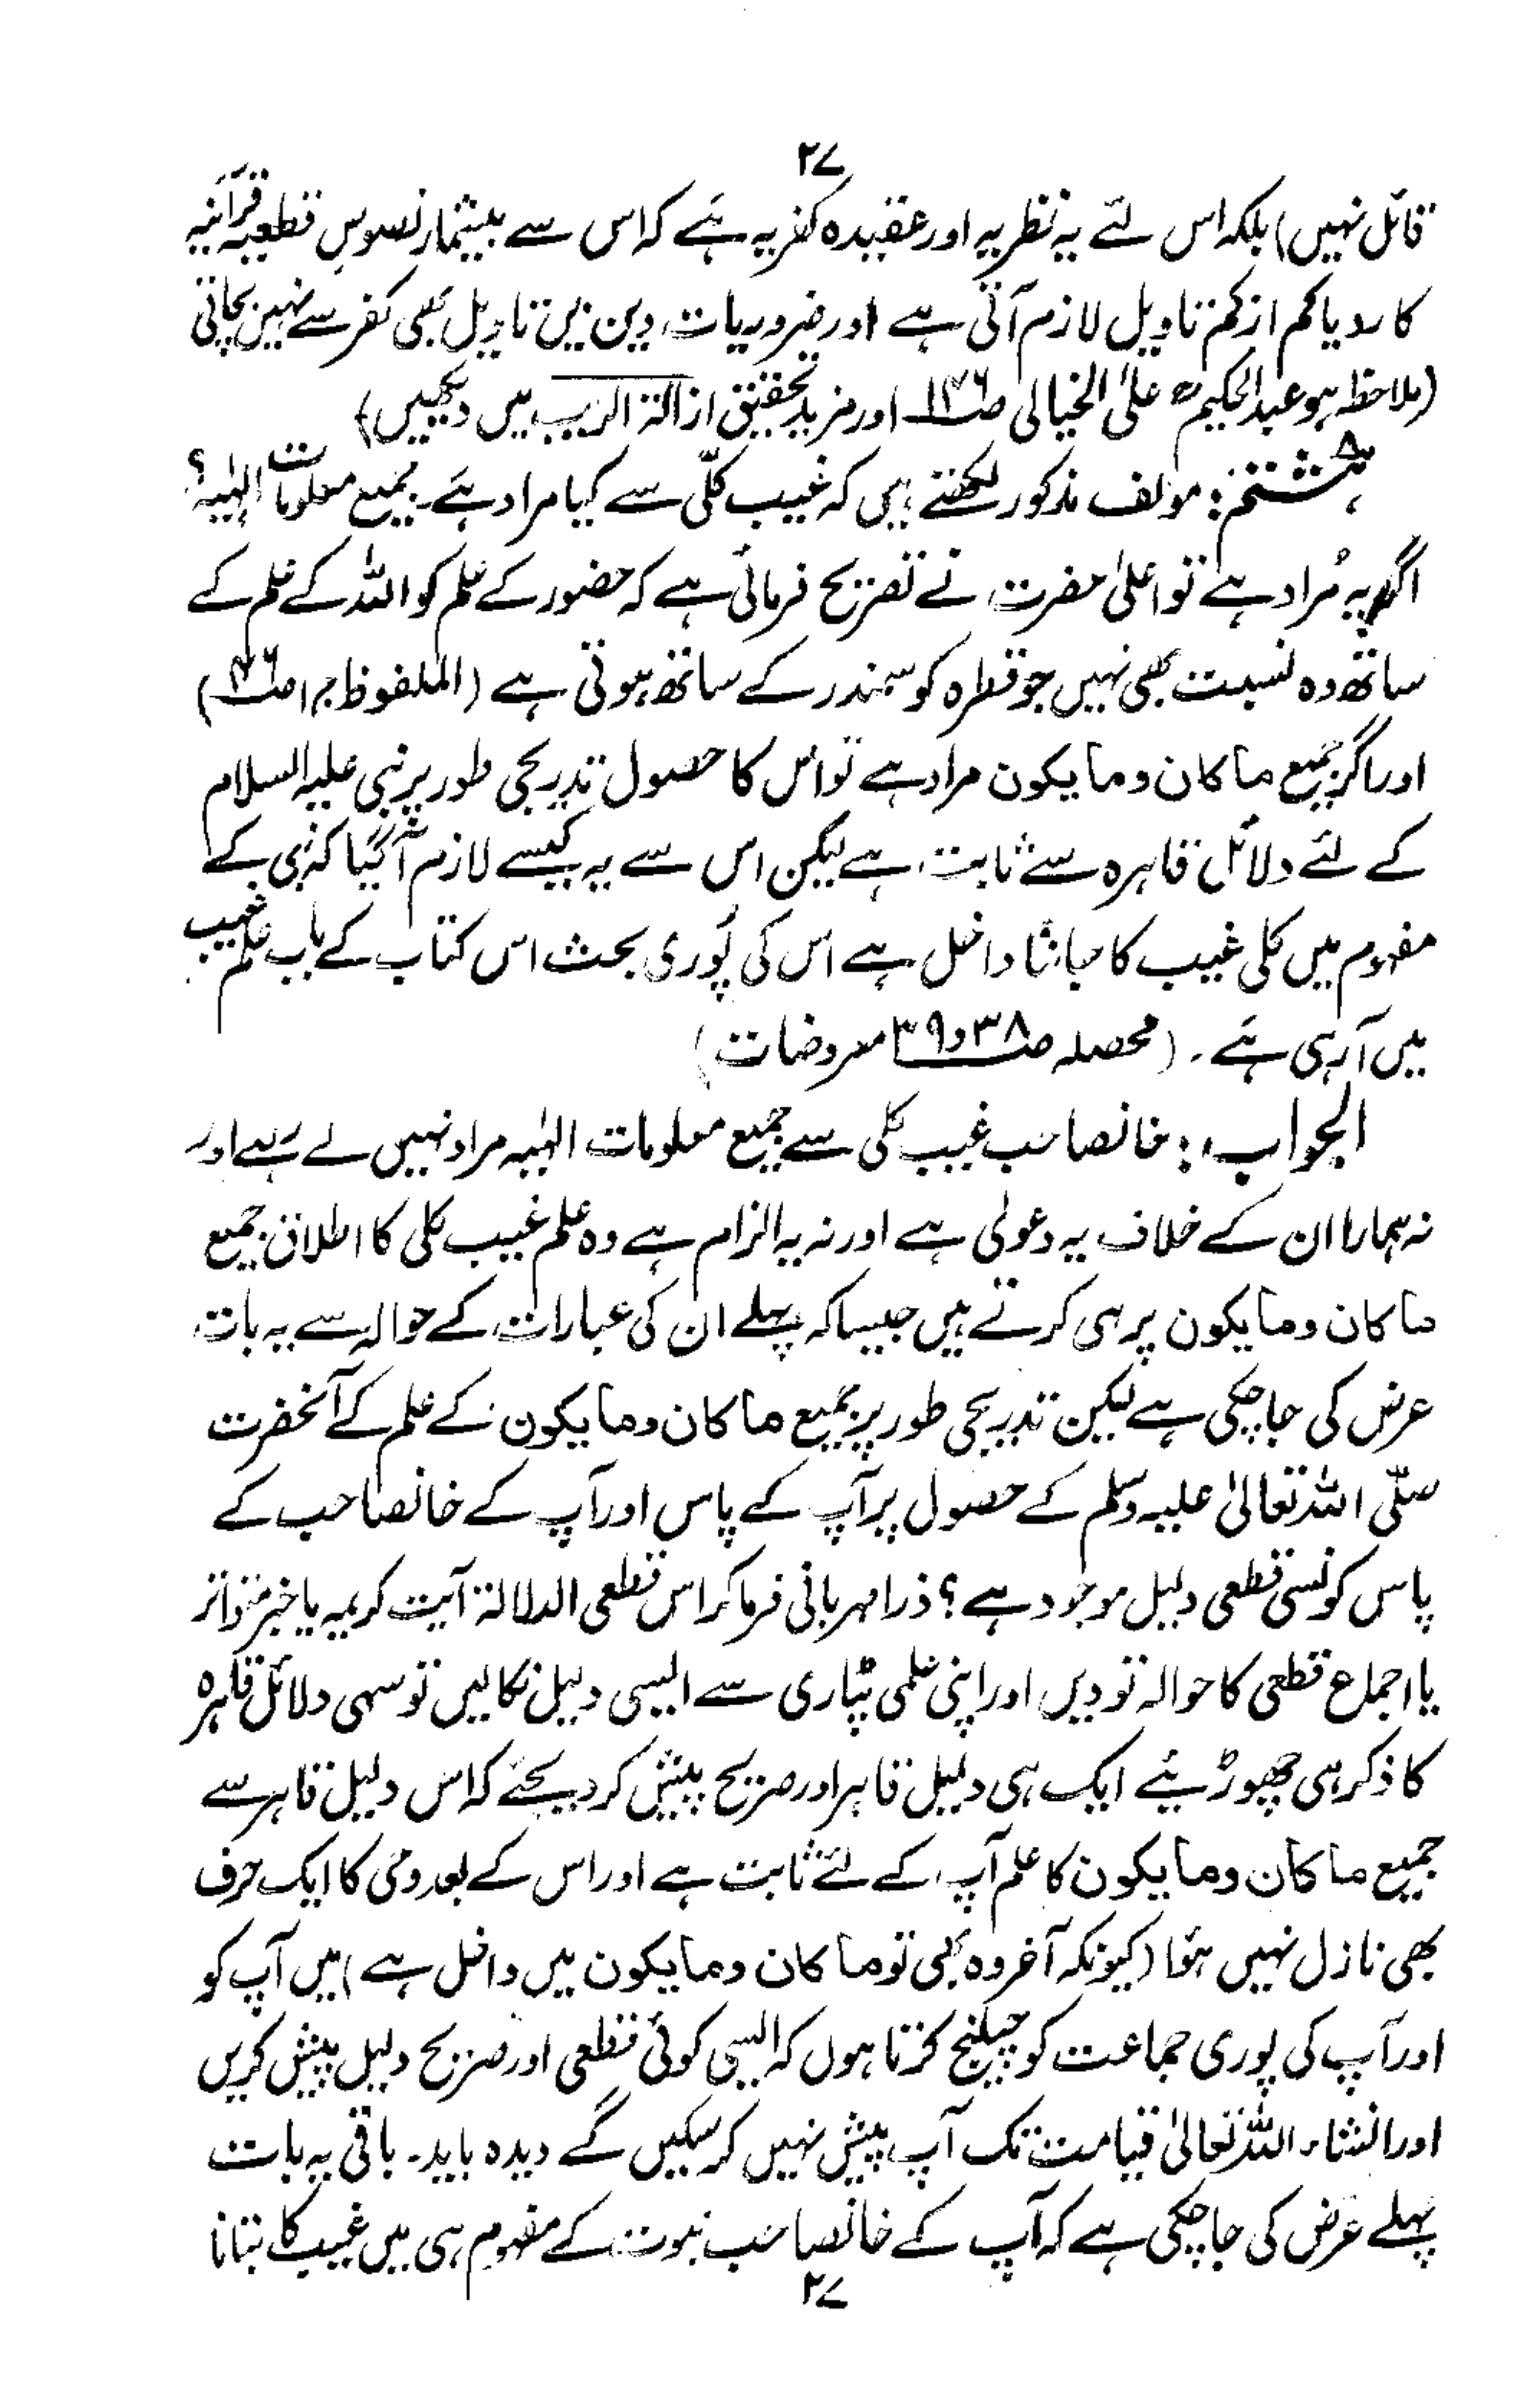 ۲۷
قائل نہیں) بلکہ اس لئے یہ نظریہ اور عقیدہ کفریہ ہے کہ اس سے بیشمار نصوص قطعیہ قرآنیہ
کا رد یا کم از کم تاویل لازم آتی ہے اور ضروریات دین میں تاویل بھی کفر سے نہیں بچاتی
(ملاحظہ ہو عبدالحکیمؒ علی الخیالی ص۱۳۶ اور مزید تحقیق ازالۃ الریب میں دیکھیں)
ہشتم: مولف مذکور لکھتے ہیں کہ غیب کلّی سے کیا مراد ہے۔ جمیع معلومات الٰہیہ؟
اگر یہ مُراد ہے تو اعلیٰ حضرت نے تصریح فرمائی ہے کہ حضور کے علم کو اللہ کے علم کے
ساتھ وہ نسبت بھی نہیں جو قطرہ کو سمندر کے ساتھ ہوتی ہے (الملفوظ ج۱ ص۴۶)
اور اگر جمیع ما کان وما یکون مراد ہے تو اس کا حصول تدریجی طور پر نبی علیہ السلام
کے لئے دلائل قاہرہ سے ثابت ہے لیکن اس سے یہ کیسے لازم آ گیا کہ نبی کے
مفہوم میں کلی غیب کا جاننا داخل ہے اس کی پُوری بحث اس کتاب کے باب علم غیب
میں آ رہی ہے۔ (محصلہ ص۳۸ و ۳۹ معروضات)
الجواب: خانصاحب غیب کلی سے جمیع معلومات الٰہیہ مراد نہیں لے رہے اور
نہ ہمارا ان کے خلاف یہ دعوٰی ہے اور نہ یہ الزام ہے وہ علم غیب کلی کا اطلاق جمیع
ما کان وما یکون پر ہی کرتے ہیں جیسا کہ پہلے ان کی عبارات کے حوالہ سے یہ بات
عرض کی جا چکی ہے لیکن تدریجی طور پر جمیع ما کان وما یکون کے علم کے آنحضرت
صلّی اللہ تعالیٰ علیہ وسلم کے حصول پر آپ کے پاس اور آپ کے خانصاحب کے
پاس کونسی قطعی دلیل موجود ہے؟ ذرا مہربانی فرما کر اس قطعی الدلالۃ آیت کریمہ یا خبر متواتر
یا اجماع قطعی کا حوالہ تو دیں اور اپنی علمی پٹاری سے ایسی دلیل نکالیں تو سہی دلائل قاہرہ
کا ذکر ہی چھوڑیئے ایک ہی دلیل قاہر اور صریح پیش کر دیجئے کہ اس دلیل قاہر سے
جمیع ما کان وما یکون کا علم آپ کے لئے ثابت ہے اور اس کے بعد وحی کا ایک حرف
بھی نازل نہیں ہوا (کیونکہ آخر وہ بھی تو ما کان وما یکون میں داخل ہے) میں آپ کو
اور آپ کی پوری جماعت کو چیلنج کرتا ہوں کہ ایسی کوئی قطعی اور صریح دلیل پیش کریں
اور انشاء اللہ تعالیٰ قیامت تک آپ پیش نہیں کر سکیں گے دیدہ باید۔ باقی یہ بات
پہلے عرض کی جا چکی ہے کہ آپ کے خانصاحب نبوت کے مفہوم ہی میں غیب کا بتانا
۲۷